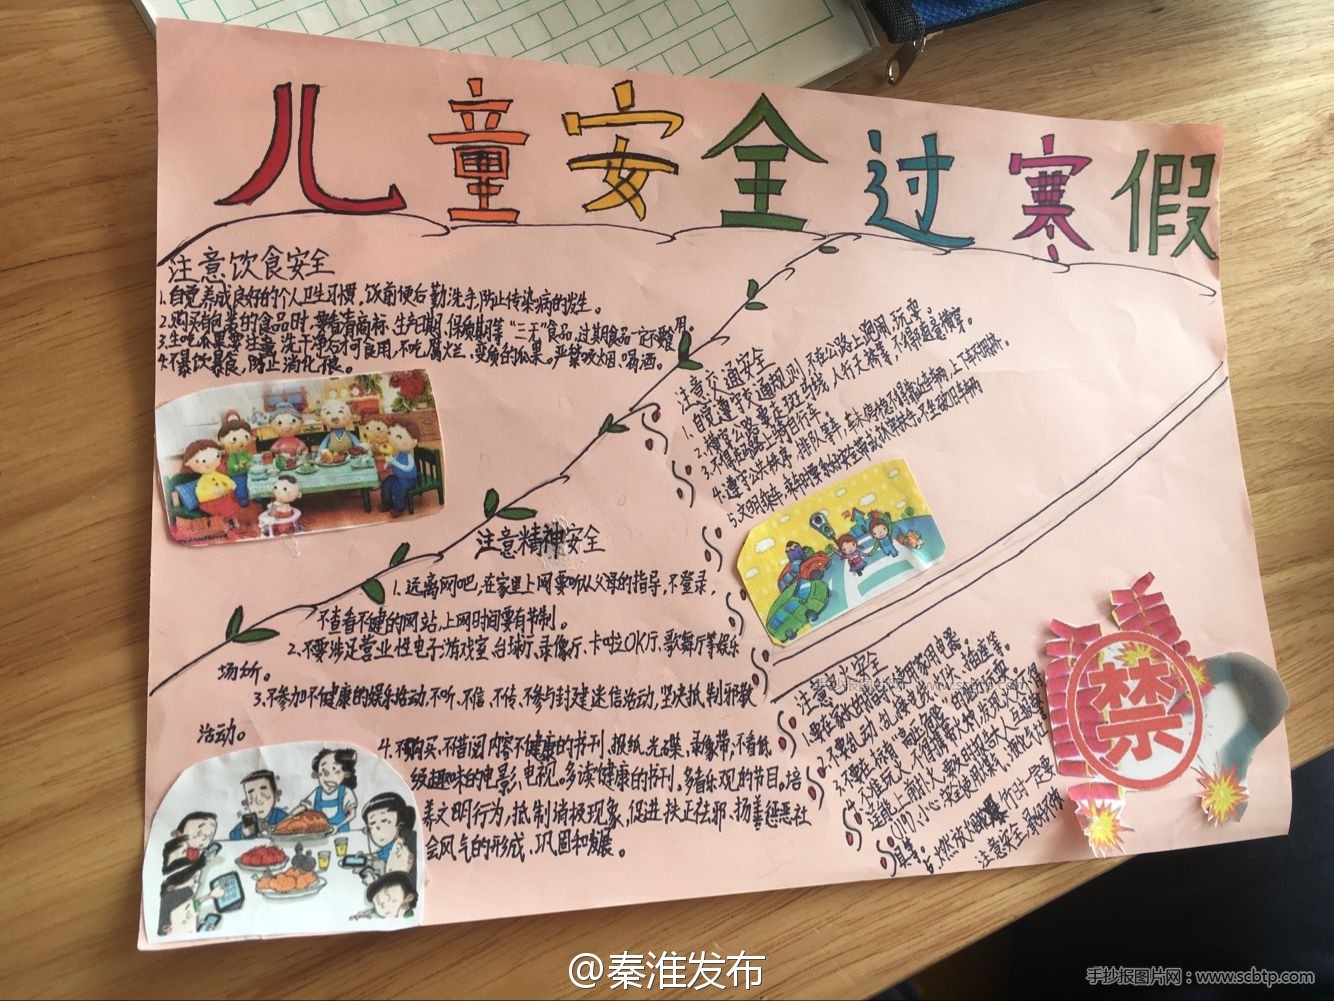 儿童安全过寒假
注意饮食安全
1.自觉养成良好的个人卫生习惯,饭前便后勤洗手,防止传染病的发生。
2.购买有包装的食品时,要看清商标、生产日期、保质期等“三无”食品,过期食品一定不要食用。
3.生吃瓜果要注意洗干净后才可食用,不吃腐烂、变质的瓜果。严禁吸烟、喝酒。
4.不暴饮暴食,防止消化不良。
注意交通安全
1.自觉遵守交通规则,不在公路上追闹、玩耍。
2.横穿公路要走斑马线,人行天桥等,不得随意横穿。
3.不得在马路上骑自行车
4.遵守公共秩序,排队等车,车未停稳不得靠近车辆,上下车不拥挤。
5.文明乘车,乘车时要系好安全带
不坐破旧车辆
注意精神安全
1.远离网吧,在家里上网要听从父母的指导,不登录,
不查看不健的网站,上网时间要有节制。
2.不要涉足营业性电子游戏室、台球厅、录像厅、卡啦OK厅、歌舞厅等娱乐
场所。
3.不参加不健康的娱乐活动,不听、不信、不传、不参与封建迷信活动,坚决抵制邪教
活动。
4.不购买、不借阅内容不健康的书刊、报纸、光碟、录象带,不看低
级趣味的电影、电视。多读健康的书刊,多看乐观的节目。培
养文明行为,抵制消极现象,促进扶正祛邪、扬善惩恶社
会风气的形成、巩固和发展。
注意电火安全
1.要在家长的指导下使用家用电器。
2.不要乱动、乱接电线、灯头、插座等。
注意安全,最好不你
禁
@秦淮发布
手抄报图片网:www.scbtp.com